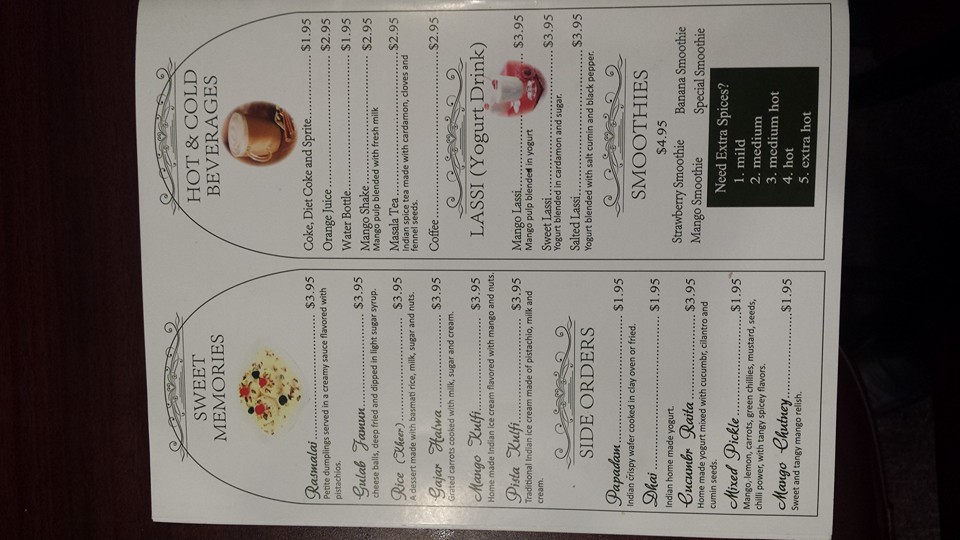 SWEET
MEMORIES
Rasmalai $3.95
Petite dumplings served in a creamy sauce flavored with
pistachios.
Gulab Jamun $3.95
cheese balls, deep fried and dipped in light sugar syrup.
Rice (Kheer) $3.95
A dessert made with basmati rice, milk, sugar and nuts.
Gajar Halwa $3.95
Grated carrots cooked with milk, sugar and cream.
Mango Kulfi $3.95
Home made Indian ice cream flavored with mango and nuts.
Pista Kulfi $3.95
Traditional Indian ice cream made of pistachio, milk and
cream.
SIDE ORDERS
Papadam $1.95
Indian crispy wafer cooked in clay oven or fried.
Dhai $1.95
Indian home made yogurt.
Cucumbr Raita $3.95
Home made yogurt mixed with cucumbr, cilantro and
cumin seeds.
Mixed Pickle $1.95
Mango, lemon, carrots, green chillies, mustard, seeds,
chilli power, with tangy spicey flavors.
Mango Chutney $1.95
Sweet and tangy mango relish.
HOT & COLD
BEVERAGES
Coke, Diet Coke and Sprite $1.95
Orange Juice $2.95
Water Bottle $1.95
Mango Shake $2.95
Mango pulp blended with fresh milk
Masala Tea $2.95
Indian spice tea made with cardamon, cloves and
fennel seeds.
Coffee $2.95
LASSI (Yogurt Drink)
Mango Lassi $3.95
Mango pulp blended in yogurt
Sweet Lassi $3.95
Yogurt blended in cardamon and sugar.
Salted Lassi $3.95
Yogurt blended with salt cumin and black pepper.
SMOOTHIES
$4.95
Strawberry Smoothie Banana Smoothie
Mango Smoothie Special Smoothie
Need Extra Spices?
1. mild
2. medium
3. medium hot
4. hot
5. extra hot